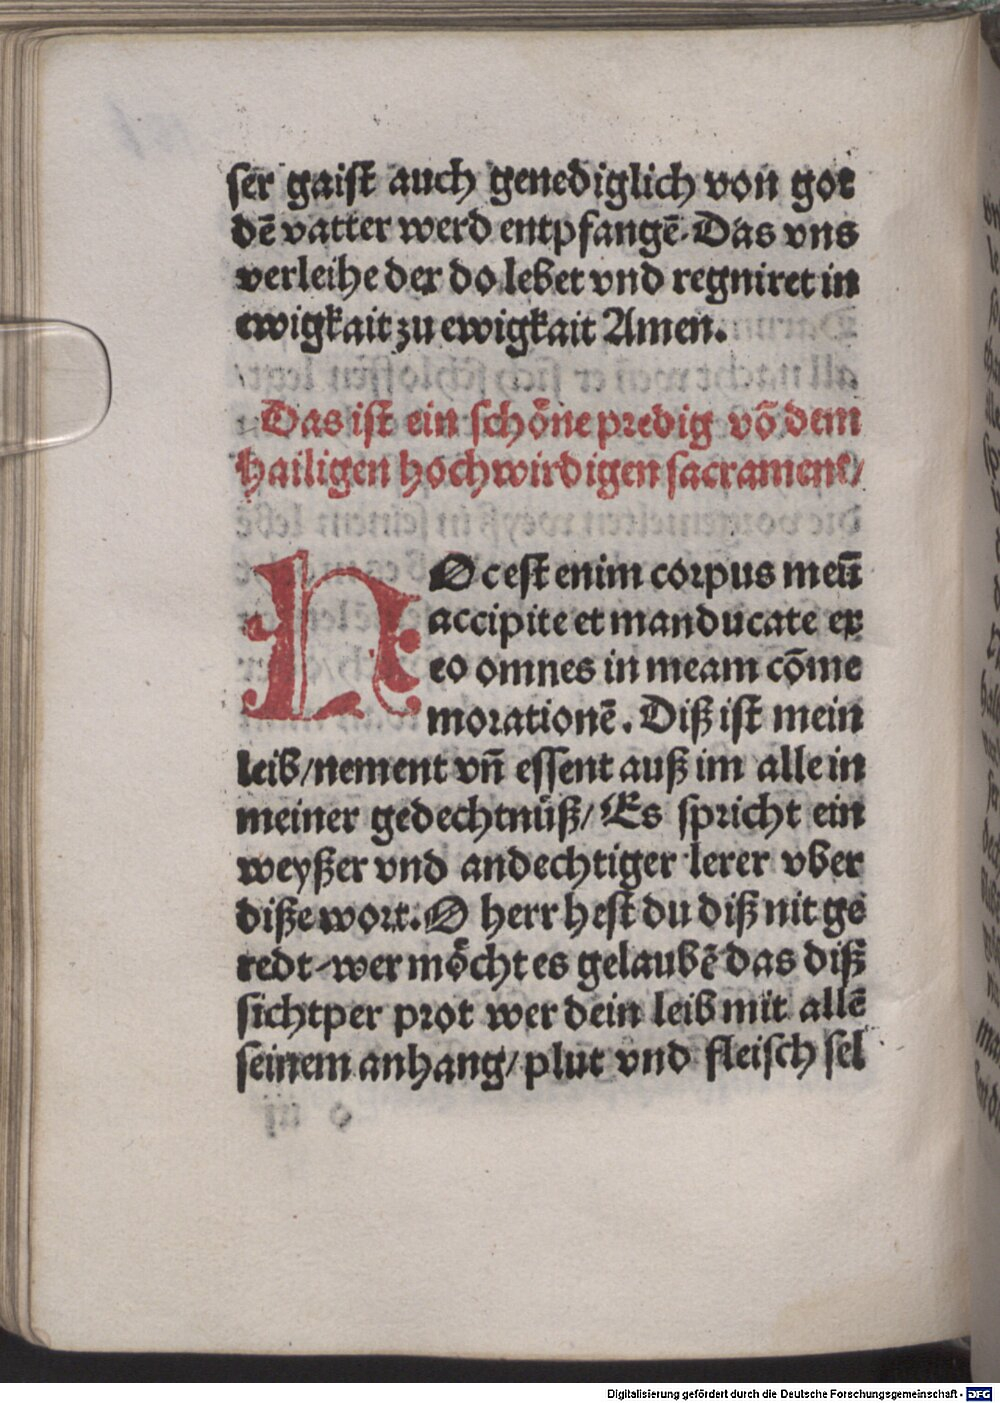 ſer gaiſt auch genediglich von got
dē vatter werd entpfangē. Das vns
verleihe der do lebet vnd regniret in
ewigkait zu ewigkait Amen.
Das iſt ein ſchöne predig vō dem
hailigen hochwirdigen ſacrament/
HOc eſt enim corpus meū
accipite et manducate ex
eo omnes in meam cōme
morationē. Diß iſt mein
leib/nement vn̄ eſſent auß im alle in
meiner gedechtnüß/ Es ſpricht ein
weyßer vnd andechtiger lerer vber
diße wort. O herr heſt du diß nit ge
redt-wer möcht es gelaubē das diß
ſichtper prot wer dein leib mit allē
ſeinem anhang/plut vnd fleiſch ſel
Digitalisierung gefördert durch die Deutsche Forschungsgemeinschaft - DFG